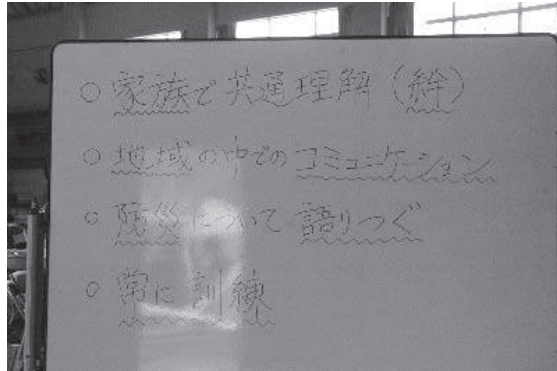 ○ 家族で共通理解(絆)
○ 地域の中でのコミュニケーション
○ 防災について語りつぐ
○ 常に訓練